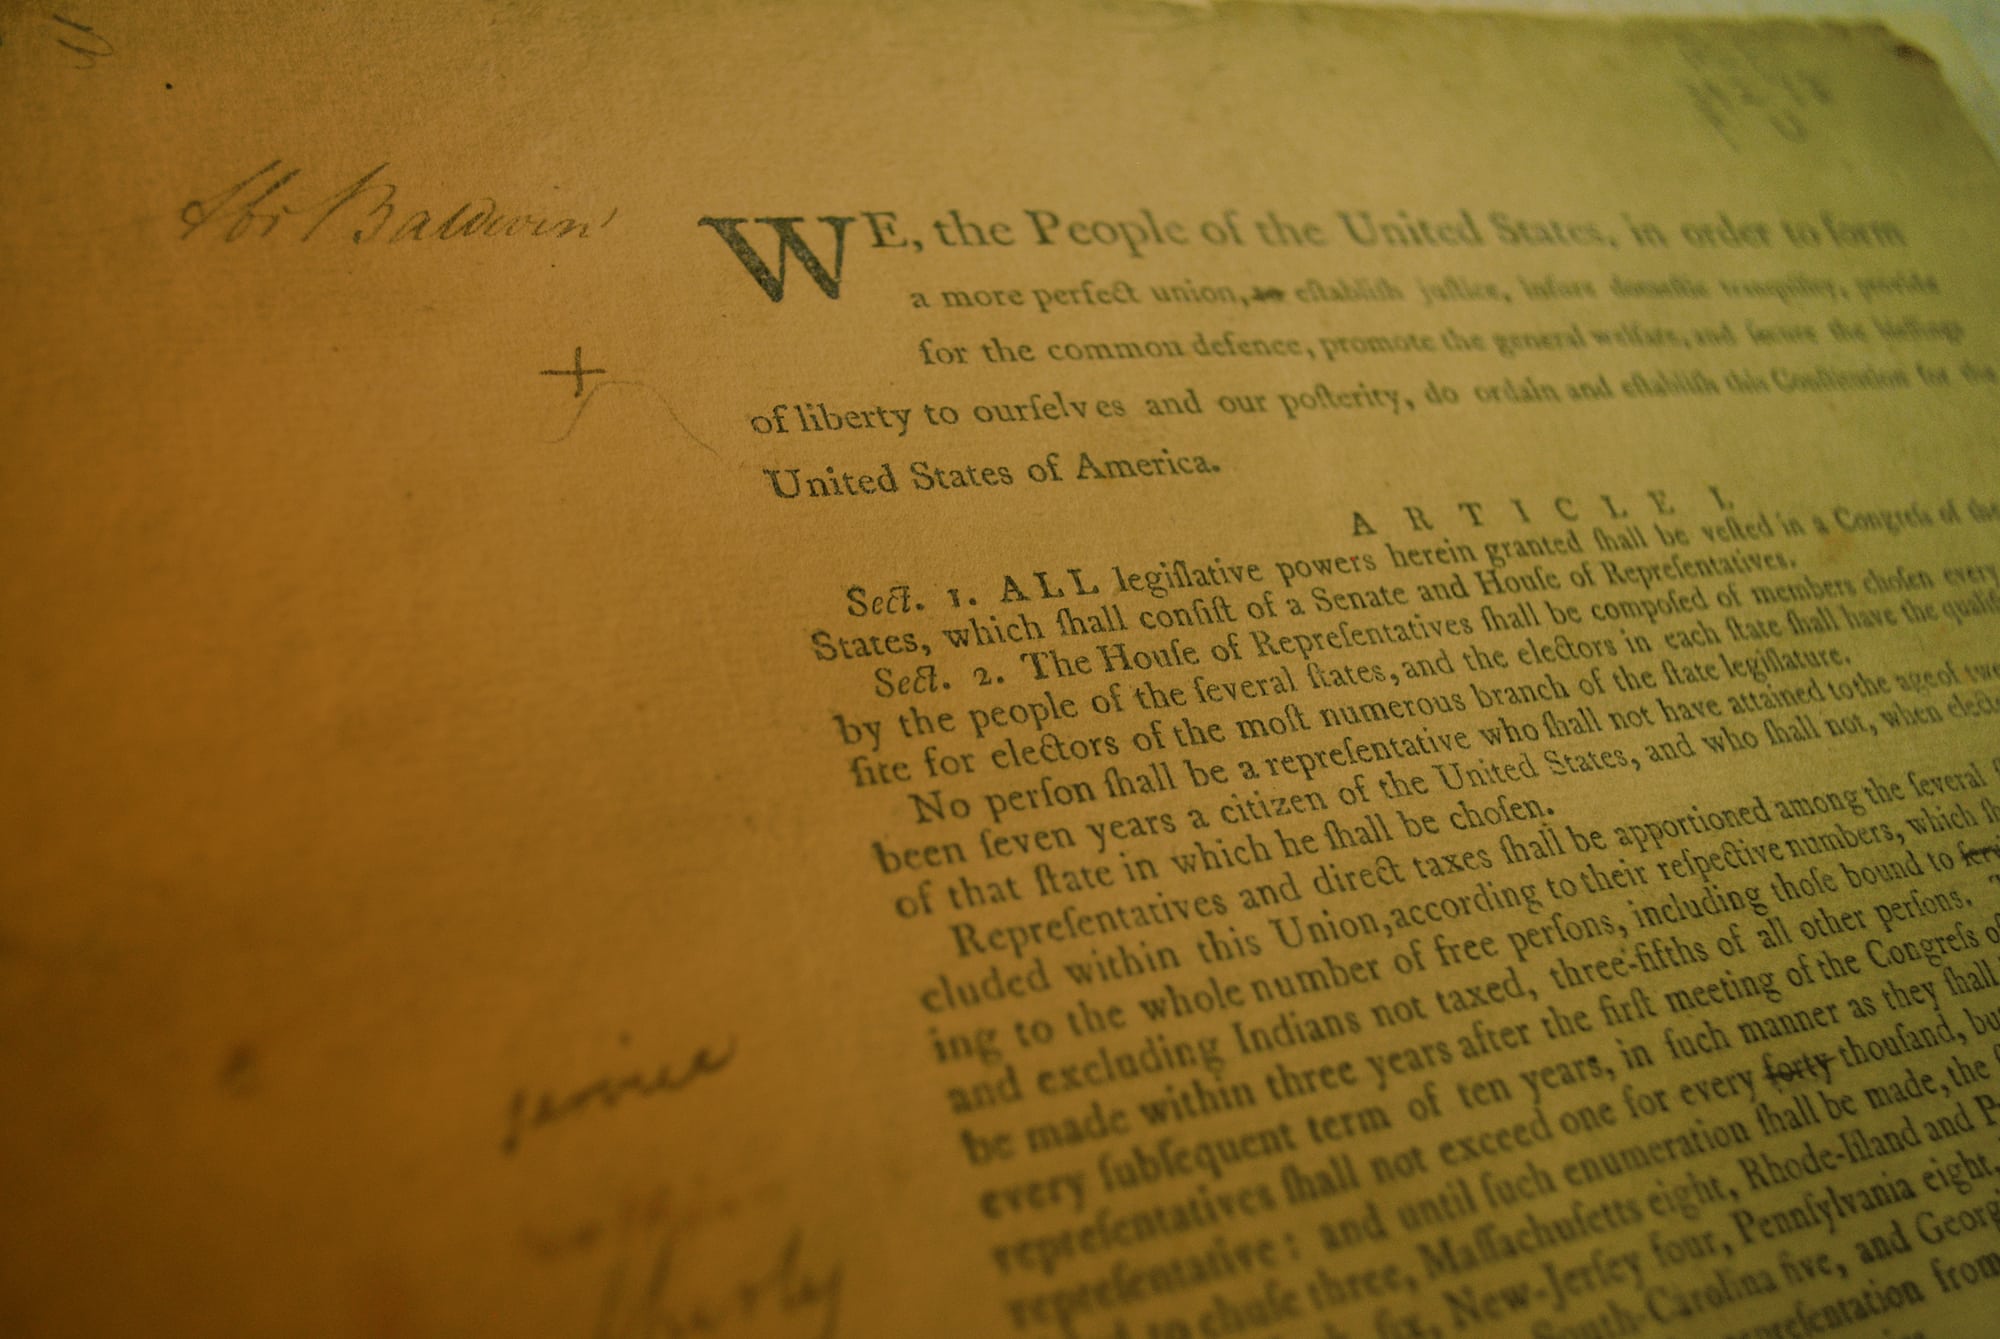 Abr Baldwin
WE, the People of the United States, in order to form
a more perfect union, to eſtabliſh juſtice, inſure domeſtic tranquility, provide
for the common defence, promote the general welfare, and ſecure the bleſſings
of liberty to ourſelves and our poſterity, do ordain and eſtabliſh this Conſtitution for the
United States of America.
ARTICLE I.
Sect. 1. ALL legiſlative powers herein granted ſhall be veſted in a Congreſs of the
States, which ſhall conſiſt of a Senate and Houſe of Repreſentatives.
Sect. 2. The Houſe of Repreſentatives ſhall be compoſed of members choſen every
by the people of the ſeveral ſtates, and the electors in each ſtate ſhall have the qualif
ſite for electors of the moſt numerous branch of the ſtate legiſlature.
No perſon ſhall be a repreſentative who ſhall not have attained to the age of twe
been ſeven years a citizen of the United States, and who ſhall not, when elect
of that ſtate in which he ſhall be choſen.
Repreſentatives and direct taxes ſhall be apportioned among the ſeveral ſ
cluded within this Union, according to their reſpective numbers, which ſh
ing to the whole number of free perſons, including thoſe bound to ſervi
and excluding Indians not taxed, three-fifths of all other perſons. T
be made within three years after the firſt meeting of the Congreſs of
every ſubſequent term of ten years, in ſuch manner as they ſhall
repreſentatives ſhall not exceed one for every forty thouſand, bu
repreſentative: and until ſuch enumeration ſhall be made, the ſ
to chuſe three, Maſſachuſetts eight, Rhode-Iſland and P
ſix, New-Jerſey four, Pennſylvania eight,
South-Carolina five, and Georgi
repreſentation from
service
thirty